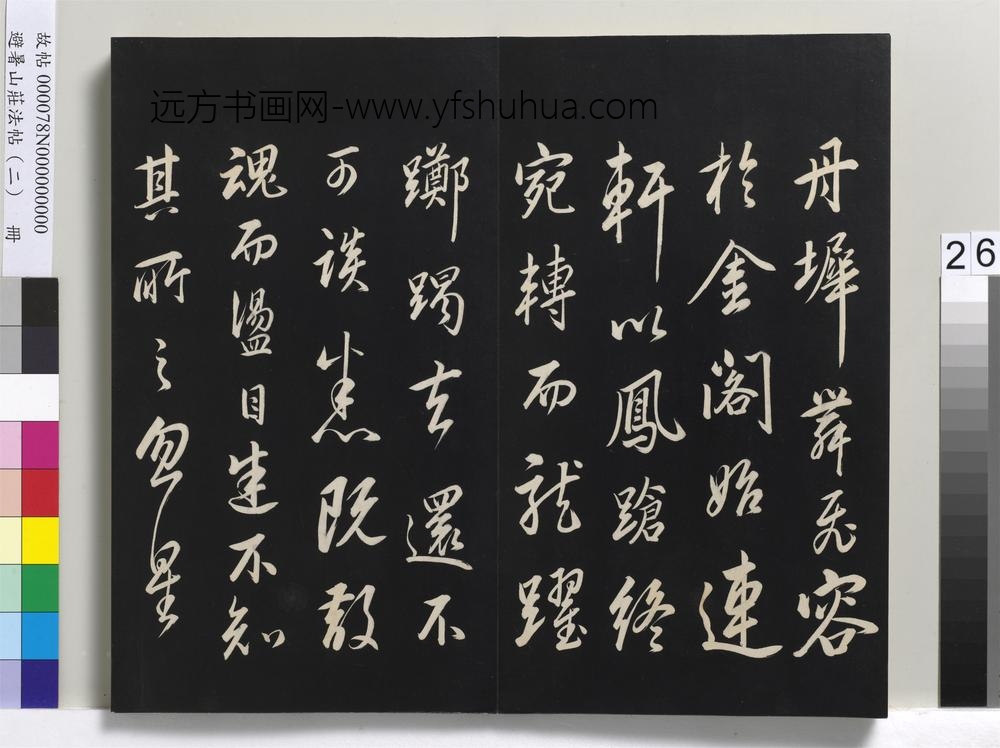 远方书画网-www.yfshuhua.com
丹墀舞飛容
於金閣始連
軒以鳳蹌終
宛轉而龍躍
躑躅去還不
可談悉既散
魂而盪目迷不知
其所之忽星
故帖 000078N000000000
避暑山莊法帖(二) 冊
26